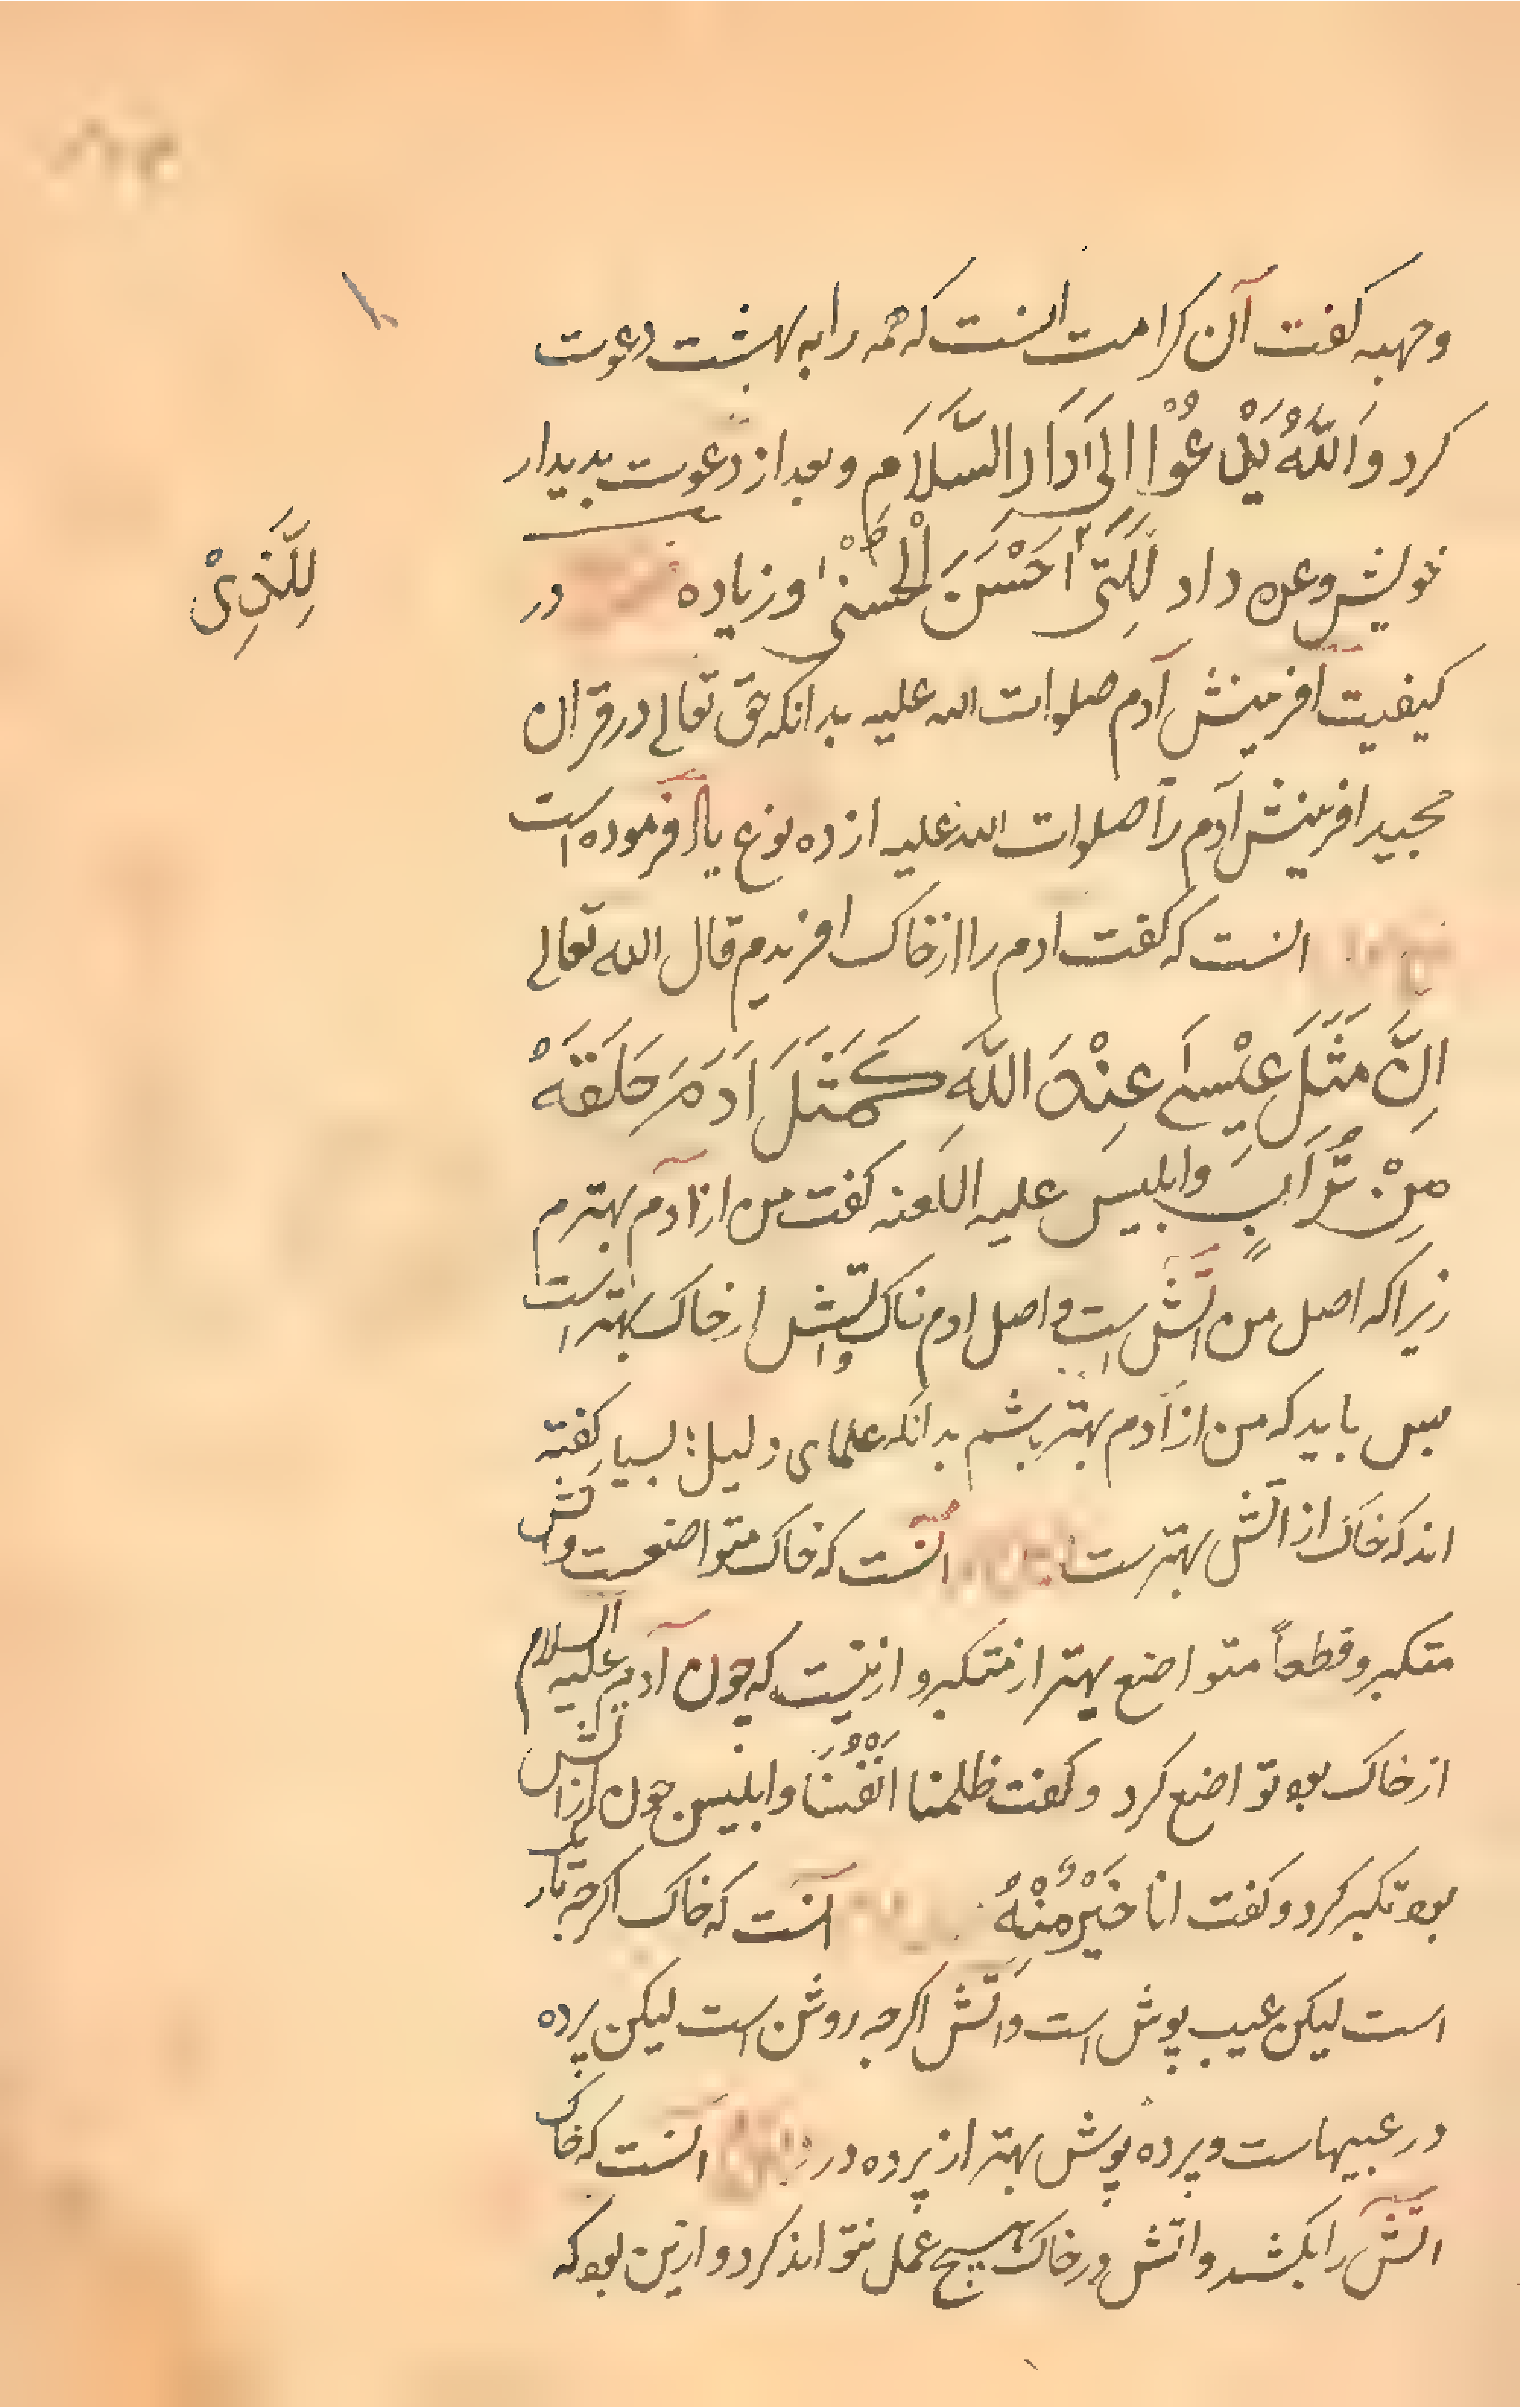 وجهبه کفت آن کرامت انست که همه را به بهشت دعوت
کرد وَاللّٰهُ يَدْعُوْا اِلىٰ دَارِ السَّلَامِ وبعد از دعوت بدیدار
خویش وعده داد لِلَّتِىْ اَحْسَنَ الْحُسْنٰى وزیاده در
لِلَّذِىْ
کیفیت آفرینش آدم صلوات الله علیه بدانکه حق تعالی در قران
مجید افرینش آدم را صلوات الله علیه از ده نوع یاد فرموده است
انست که کفت ادم را از خاک افریدم قال الله تعالی
اِنَّ مَثَلَ عِيْسٰى عِنْدَ اللّٰهِ كَمَثَلِ اٰدَمَ خَلَقَهٗ
مِنْ تُرَابٍ وابلیس علیه اللعنه کفت من از آدم بهترم
زیرا که اصل من اتش است واصل ادم خاک واتش از خاک بهتر است
پس باید که من از آدم بهتر باشم بدانکه علمای دلیل؛ بسیار کفته
اند که خاک از اتش بهترست انست که خاک متواضعست واتش
متکبر وقطعاً متواضع بهتر از متکبر وازینست که چون آدم علیه السلام
از خاک بود تواضع کرد وکفت ظلمنا اَنْفُسَنَا وابلیس چون از اتش
بود تکبر کرد وکفت انا خَيْرٌ مِنْهُ انست که خاک اکرچه تار
است لیکن عیب پوش است واتش اکرچه روشن است لیکن پرده
در عیبهاست وپرده پوش بهتر از پرده در انست که خاک
اتش را بکشد واتش در خاک هیچ عمل نتواند کرد وازین بود که